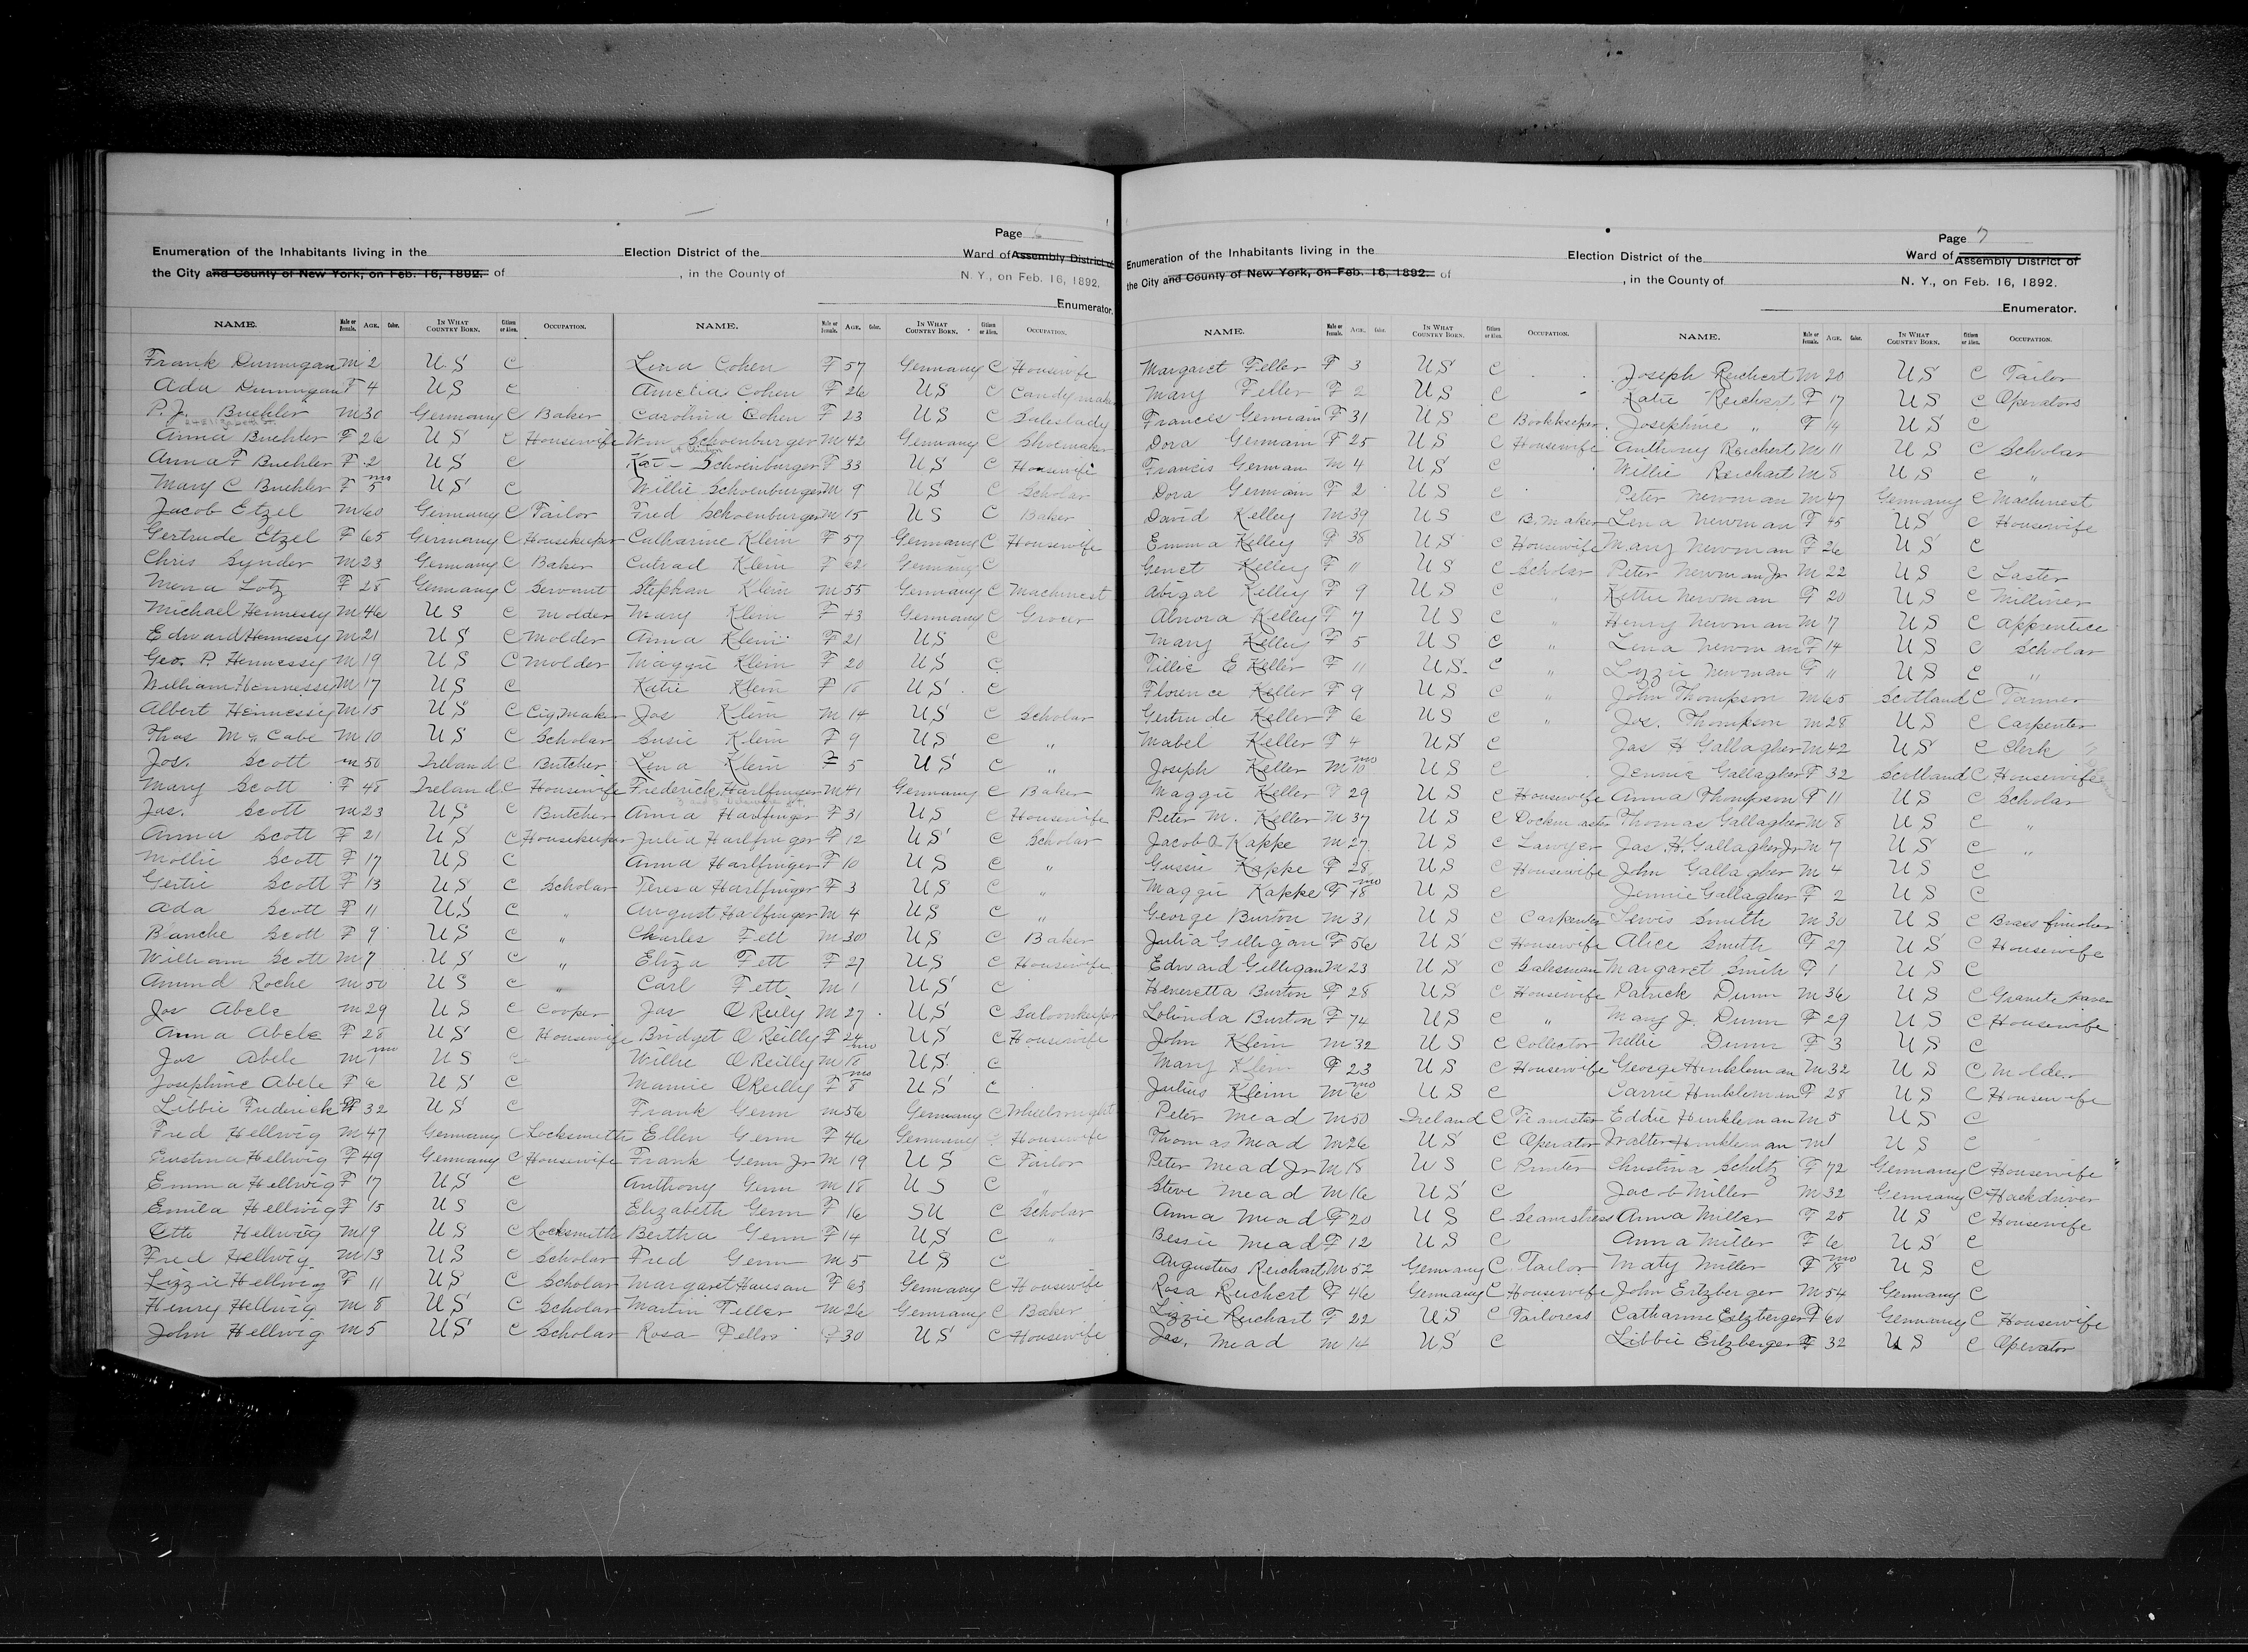 Page 6
Enumeration of the Inhabitants living in the Election District of the Ward of Assembly District of
the City and County of New York, on Feb. 16, 1892. of , in the County of N. Y., on Feb. 16, 1892.
Enumerator.
NAME. Male or Female. AGE. Color. IN WHAT COUNTRY BORN. Citizen or Alien. OCCUPATION.
Frank Dunnigan M 2 U.S C
Ada Dunnigan F 4 U S C
P. J. Buehler M 30 Germany C Baker
Anna Buehler F 26 U S C Housewife
Anna F Buehler F 2 U S C
Mary C Buehler F 5 mo U S C
Jacob Etzel M 60 Germany C Tailor
Gertrude Etzel F 65 Germany C Housekeeper
Chris Synder M 23 Germany C Baker
Mena Lotz F 28 Germany C Servant
Michael Hennessy M 46 U S C Molder
Edward Hennessy M 21 U S C Molder
Geo. P. Hennessy M 19 U S C Molder
William Hennessy M 17 U S C
Albert Hennessy M 15 U S C Cig. Maker
Thos McCabe M 10 U S C Scholar
Jos. Scott M 50 Ireland C Butcher
Mary Scott F 48 Ireland C Housewife
Jas. Scott M 23 U S C Butcher
Anna Scott F 21 U S C Housekeeper
Mollie Scott F 17 U S C
Gertie Scott F 13 U S C Scholar
Ada Scott F 11 U S C "
Blanche Scott F 9 U S C "
William Scott M 7 U S C "
Amund Roche M 50 U S C "
Jos Abele M 29 U S C Cooper
Anna Abele F 28 U S C Housewife
Jos Abele M 1 mo U S C
Josephine Abele F 6 U S C
Libbie Frederick F 32 U S C
Fred Hellwig M 47 Germany C Locksmith
Hellwig F 49 Germany C Housewife
Emma Hellwig F 17 U S C
Emila Hellwig F 15 U S C
Otto Hellwig M 19 U S C Locksmith
Fred Hellwig M 13 U S C Scholar
Lizzie Hellwig F 11 U S C Scholar
Henry Hellwig M 8 U S C Scholar
John Hellwig M 5 U S C Scholar
NAME. Male or Female. AGE. Color. IN WHAT COUNTRY BORN. Citizen or Alien. OCCUPATION.
Lena Cohen F 57 Germany C Housewife
Amelia Cohen F 26 U S C Candy maker
Carolina Cohen F 23 U S C Saleslady
Wm Schoenburger M 42 Germany C Shoemaker
Kat - Schoenburger F 33 U S C Housewife
Willie Schoenburger M 9 U S C Scholar
Fred Schoenburger M 15 U S C Baker
Catharine Klein F 57 Germany C Housewife
Klein F 62 Germany C
Stephan Klein M 55 Germany C Machinest
Mary Klein F 43 Germany C Grocer
Anna Klein F 21 U S C
Maggie Klein F 20 U S C
Katie Klein F 18 U S C
Jos Klein M 14 U S C Scholar
Susie Klein F 9 U S C "
Lena Klein F 5 U S C "
Frederick Harlfinger M 41 Germany C Baker
Anna Harlfinger F 31 U S C Housewife
Julia Harlfinger F 12 U S C Scholar
Anna Harlfinger F 10 U S C "
Teresa Harlfinger F 3 U S C "
August Harlfinger M 4 U S C "
Charles Fett M 30 U S C Baker
Eliza Fett F 27 U S C Housewife
Carl Fett M 1 U S C
Jas O'Reily M 27 U S C Saloonkeeper
Bridget O'Reilly F 24 U S C Housewife
Willie O'Reilly M 18 mo U S C
Mamie O'Reilly F 8 mo U S C
Frank Genn M 56 Germany C Wheelwright
Ellen Genn F 46 Germany C Housewife
Frank Genn Jr M 19 U S C Tailor
Anthony Genn M 18 U S C "
Elizabeth Genn F 16 S U C Scholar
Bertha Genn F 14 U S C "
Fred Genn M 5 U S C
Margaret Hausan F 63 Germany C Housewife
Martin Feller M 26 Germany C Baker
Rosa Feller F 30 U S C Housewife
Page 7
Enumeration of the Inhabitants living in the Election District of the Ward of Assembly District of
the City and County of New York, on Feb. 16, 1892. of , in the County of N. Y., on Feb. 16, 1892.
Enumerator.
NAME. Male or Female. AGE. Color. IN WHAT COUNTRY BORN. Citizen or Alien. OCCUPATION.
Margaret Feller F 3 U S C
Mary Feller F 2 U S C
Frances Germain F 31 U S C Bookkeeper
Dora Germain F 25 U S C Housewife
Francis German M 4 U S C
Dora Germain F 2 U S C
David Kelley M 39 U S C B. maker
Emma Kelley F 38 U S C Housewife
Genet Kelley F 11 U S C Scholar
Abigal Kelley F 9 U S C "
Alnora Kelley F 7 U S C "
Mary Kelley F 5 U S C "
Tillie E Keller F 11 U.S. C "
Florence Keller F 9 U S C "
Gertrude Keller F 6 U S C "
Mabel Keller F 4 U S C
Joseph Keller M 10 mo U S C
Maggie Keller F 29 U S C Housewife
Peter M. Keller M 37 U S C Dockmaster
Jacob A Kappe M 27 U S C Lawyer
Gussie Kappe F 28 U S C Housewife
Maggie Kappe F 18 mo U S C
George Burton M 31 U S C Carpenter
Julia Gilligan F 56 U S C Housewife
Edward Gilligan M 23 U S C Salesman
Heneretta Burton F 28 U S C Housewife
Lolinda Burton F 74 U S C "
John Klein M 32 U S C Collector
Mary Klein F 23 U S C Housewife
Julius Kleim M 6 mo U S C
Peter Mead M 50 Ireland C Teamster
Thomas Mead M 26 U S C Operator
Peter Mead Jr M 18 U S C Printer
Steve Mead M 16 U S C
Anna Mead F 20 U S C Seamstress
Bessie Mead F 12 U S C
Augustus Reichart M 52 Germany C Tailor
Rosa Reichert F 46 Germany C Housewife
Lizzie Reichart F 22 U S C Tailoress
Jas. Mead M 14 U S C
NAME. Male or Female. AGE. Color. IN WHAT COUNTRY BORN. Citizen or Alien. OCCUPATION.
Joseph Reichert M 20 U S C Tailor
Katie Reichert F 17 U S C Operators
Josephine " F 14 U S C
Anthony Reichert M 11 U S C Scholar
Willie Reichart M 8 U S C "
Peter Newman M 47 Germany C Machinest
Lena Newman F 45 U S C Housewife
Mary Newman F 26 U S C
Peter Newman Jr M 22 U S C Laster
Kettie Newman F 20 U S C Milliner
Henry Newman M 17 U S C Apprentice
Lena Newman F 14 U S C Scholar
Lizzie Newman F 11 U S C "
John Thompson M 65 Scotland C Farmer
Jos. Thompson M 28 U S C Carpenter
Jas H Gallagher M 42 U S C Clerk
Jennie Gallagher F 32 Scotland C Housewife
Anna Thompson F 11 U S C Scholar
Thomas Gallagher M 8 U S C "
Jas. H. Gallagher Jr M 7 U S C "
John Gallagher M 4 U S C
Jennie Gallagher F 2 U S C
Lewis Smith M 30 U S C Brass finisher
Alice Smith F 27 U S C Housewife
Margaret Smith F 1 U S C
Patrick Dunn M 36 U S C Granite paver
Mary J. Dunn F 29 U S C Housewife
Nillie Dunn F 3 U S C
George Hinkleman M 32 U S C Molder
Carrie Hinkleman F 28 U S C Housewife
Eddie Hinkleman M 5 U S C
Walter Hinkleman M 1 U S C
Christina Scheltz F 72 Germany C Housewife
Jacob Miller M 32 Germany C Hackdriver
Anna Miller F 25 U S C Housewife
Anna Miller F 6 U S C
Maty Miller F 18 mo U S C
John Ertzberger M 54 Germany C
Catharine Ertzberger F 60 Germany C Housewife
Libbie Ertzberger F 32 U S C Operator